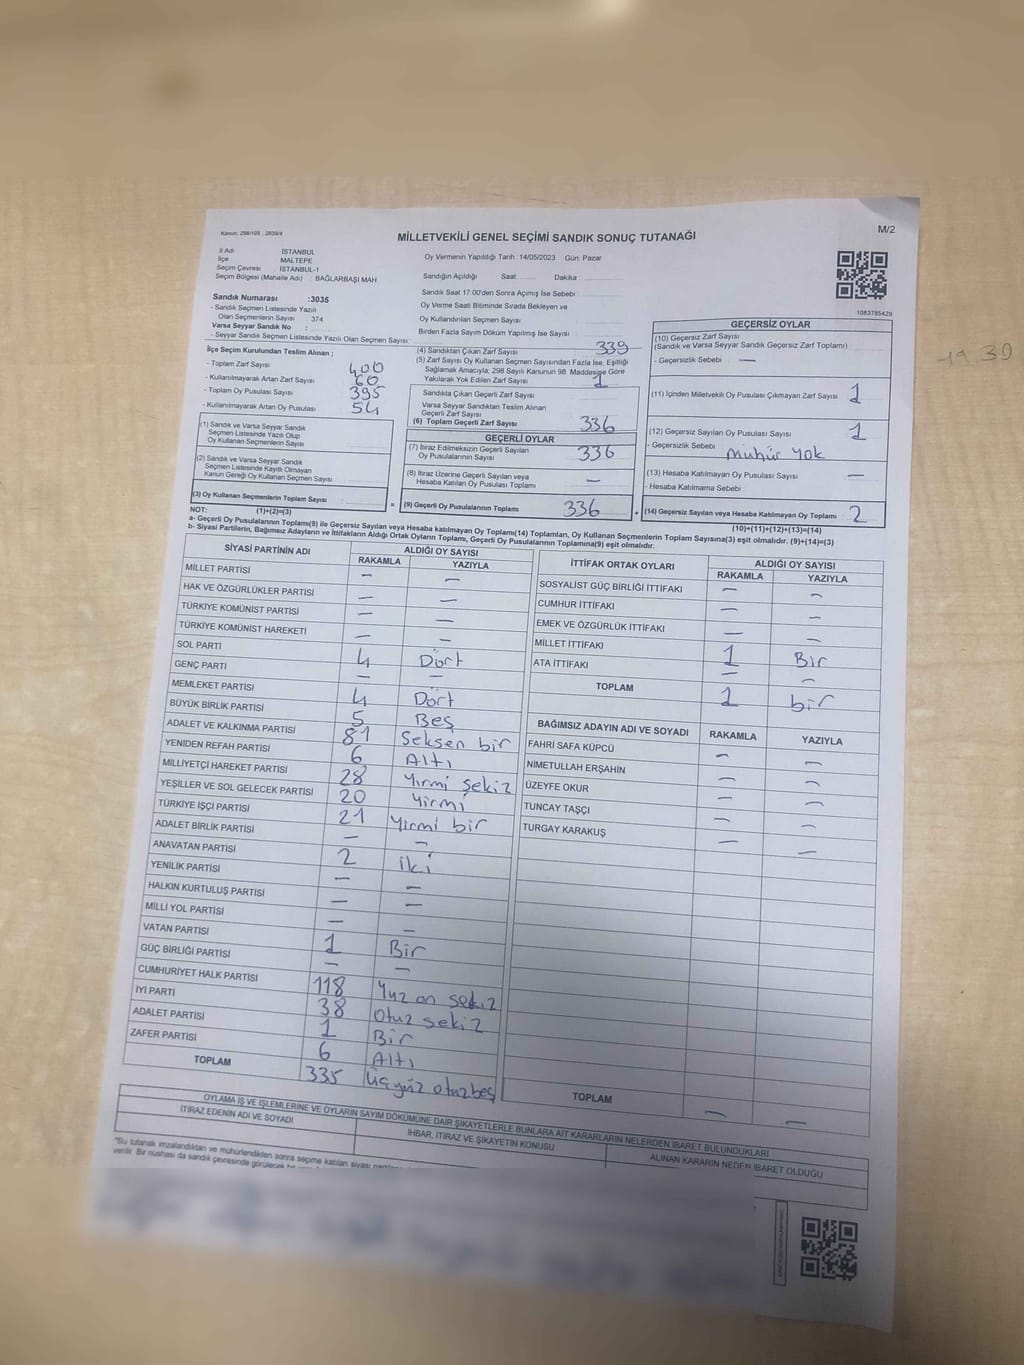 Kanun: 298/105 , 2839/4
M/2
MİLLETVEKİLİ GENEL SEÇİMİ SANDIK SONUÇ TUTANAĞI
İl Adı İSTANBUL
İlçe MALTEPE
Seçim Çevresi İSTANBUL-1
Seçim Bölgesi (Mahalle Adı) : BAĞLARBAŞI MAH
Oy Vermenin Yapıldığı Tarih :14/05/2023 Gün: Pazar
Sandığın Açıldığı Saat: Dakika :
Sandık Saat 17.00'den Sonra Açımış İse Sebebi
Oy Verme Saati Bitiminde Sırada Bekleyen ve
Oy Kullandırılan Seçmen Sayısı
Birden Fazla Sayım Döküm Yapılmış İse Sayısı
1083785429
Sandık Numarası :3035
- Sandık Seçmen Listesinde Yazılı
Olan Seçmenlerin Sayısı : 374
Varsa Seyyar Sandık No :
- Seyyar Sandık Seçmen Listesinde Yazılı Olan Seçmen Sayısı
İlçe Seçim Kurulundan Teslim Alınan ;
- Toplam Zarf Sayısı 400
- Kullanılmayarak Artan Zarf Sayısı 60
- Toplam Oy Pusulası Sayısı 395
- Kullanılmayarak Artan Oy Pusulası 54
(1) Sandık ve Varsa Seyyar Sandık
Seçmen Listesinde Yazılı Olup
Oy Kullanan Seçmenlerin Sayısı
(2) Sandık ve Varsa Seyyar Sandık
Seçmen Listesinde Kayıtlı Olmayan
Kanun Gereği Oy Kullanan Seçmen Sayısı
(3) Oy Kullanan Seçmenlerin Toplam Sayısı
(1)+(2)=(3)
(4) Sandıktan Çıkan Zarf Sayısı 339
(5) Zarf Sayısı Oy Kullanan Seçmen Sayısından Fazla İse, Eşitliği
Sağlamak Amacıyla; 298 Sayılı Kanunun 98. Maddesine Göre
Yakılarak Yok Edilen Zarf Sayısı 1
Sandıkta Çıkan Geçerli Zarf Sayısı
Varsa Seyyar Sandıktan Teslim Alınan
Geçerli Zarf Sayısı
(6) Toplam Geçerli Zarf Sayısı 336
GEÇERLİ OYLAR
(7) İtiraz Edilmeksizin Geçerli Sayılan
Oy Pusulalarının Sayısı 336
(8) İtiraz Üzerine Geçerli Sayılan veya
Hesaba Katılan Oy Pusulası Toplamı —
= (9) Geçerli Oy Pusulalarının Toplamı 336 +
GEÇERSİZ OYLAR
(10) Geçersiz Zarf Sayısı
(Sandık ve Varsa Seyyar Sandık Geçersiz Zarf Toplamı)
- Geçersizlik Sebebi —
(11) İçinden Milletvekili Oy Pusulası Çıkmayan Zarf Sayısı 1
(12) Geçersiz Sayılan Oy Pusulası Sayısı 1
- Geçersizlik Sebebi mühür yok
(13) Hesaba Katılmayan Oy Pusulası Sayısı —
- Hesaba Katılmama Sebebi
(14) Geçersiz Sayılan veya Hesaba Katılmayan Oy Toplamı 2
(10)+(11)+(12)+(13)=(14)
19 30
NOT:
a- Geçerli Oy Pusulalarının Toplamı(9) ile Geçersiz Sayılan veya Hesaba katılmayan Oy Toplamı(14) Toplamları, Oy Kullanan Seçmenlerin Toplam Sayısına(3) eşit olmalıdır. (9)+(14)=(3)
b- Siyasi Partilerin, Bağımsız Adayların ve İttifakların Aldığı Ortak Oyların Toplamı, Geçerli Oy Pusulalarının Toplamına(9) eşit olmalıdır.
SİYASİ PARTİNİN ADI ALDIĞI OY SAYISI
RAKAMLA YAZIYLA
MİLLET PARTİSİ — —
HAK VE ÖZGÜRLÜKLER PARTİSİ — —
TÜRKİYE KOMÜNİST PARTİSİ — —
TÜRKİYE KOMÜNİST HAREKETİ — —
SOL PARTİ 4 Dört
GENÇ PARTİ — —
MEMLEKET PARTİSİ 4 Dört
BÜYÜK BİRLİK PARTİSİ 5 Beş
ADALET VE KALKINMA PARTİSİ 81 Seksen bir
YENİDEN REFAH PARTİSİ 6 Altı
MİLLİYETÇİ HAREKET PARTİSİ 28 Yirmi sekiz
YEŞİLLER VE SOL GELECEK PARTİSİ 20 Yirmi
TÜRKİYE İŞÇİ PARTİSİ 21 Yirmi bir
ADALET BİRLİK PARTİSİ — —
ANAVATAN PARTİSİ 2 iki
YENİLİK PARTİSİ — —
HALKIN KURTULUŞ PARTİSİ — —
MİLLİ YOL PARTİSİ — —
VATAN PARTİSİ 1 Bir
GÜÇ BİRLİĞİ PARTİSİ — —
CUMHURİYET HALK PARTİSİ 118 Yüz on sekiz
İYİ PARTİ 38 Otuz sekiz
ADALET PARTİSİ 1 Bir
ZAFER PARTİSİ 6 Altı
TOPLAM 335 Üçyüz otuzbeş
İTTİFAK ORTAK OYLARI ALDIĞI OY SAYISI
RAKAMLA YAZIYLA
SOSYALİST GÜÇ BİRLİĞİ İTTİFAKI — —
CUMHUR İTTİFAKI — —
EMEK VE ÖZGÜRLÜK İTTİFAKI — —
MİLLET İTTİFAKI 1 Bir
ATA İTTİFAKI — —
TOPLAM 1 bir
BAĞIMSIZ ADAYIN ADI VE SOYADI RAKAMLA YAZIYLA
FAHRİ SAFA KÜPCÜ — —
NİMETULLAH ERŞAHİN — —
ÜZEYFE OKUR — —
TUNCAY TAŞÇI — —
TURGAY KARAKUŞ — —
TOPLAM — —
OYLAMA İŞ VE İŞLEMLERİNE VE OYLARIN SAYIM DÖKÜMÜNE DAİR ŞİKAYETLERLE BUNLARA AİT KARARLARIN NELERDEN İBARET BULUNDUKLARI
İTİRAZ EDENİN ADI VE SOYADI İHBAR, İTİRAZ VE ŞİKAYETİN KONUSU ALINAN KARARIN NEDEN İBARET OLDUĞU
*Bu tutanak imzalandıktan ve mühürlendikten sonra seçime katılan siyasi
verilir. Bir nüshası da sandık çevresinde görülecek bir